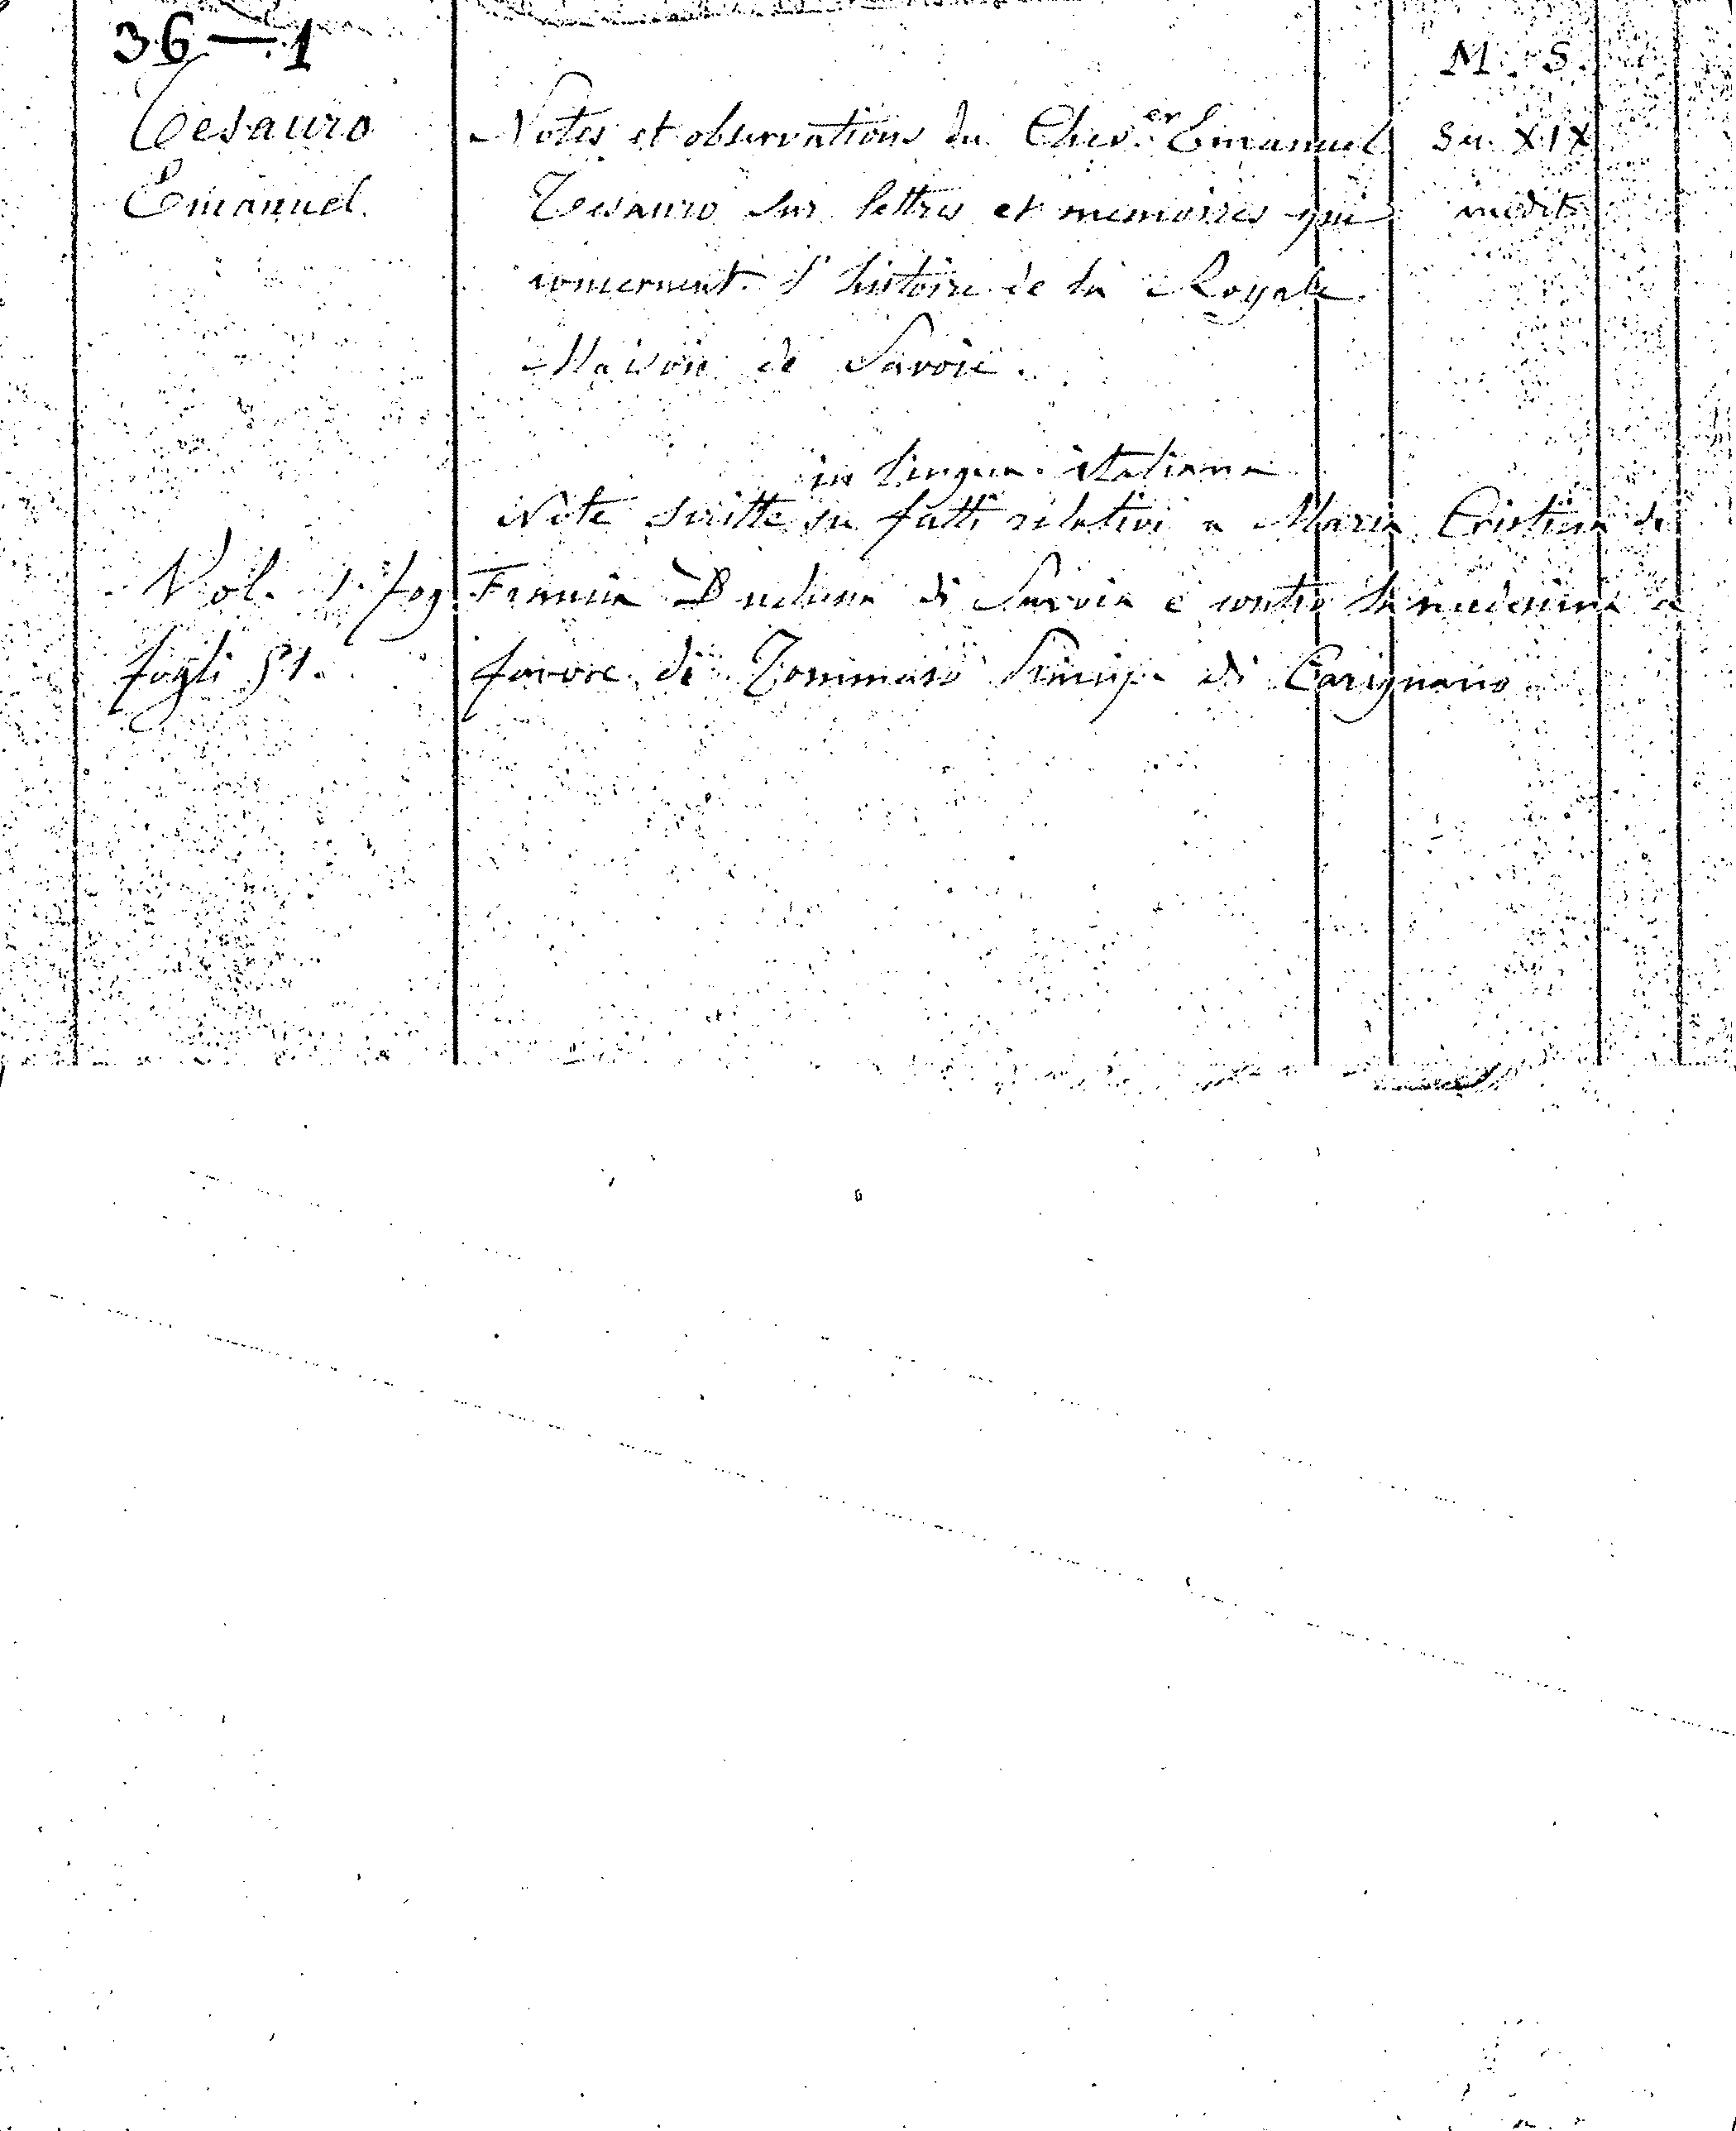 36 — 1
Tesauro
Emanuel.
Notes et observations du Chev.er Emanuel
Tesauro sur lettres et memoires qui
concernent l'histoire de la Royale
Maison de Savoie.
M. S.
Sec. XIX
inedit
in lingua italiana
Note scritte su fatti relativi a Maria Cristina di
Francia Duchessa di Savoia e contro la medesima a
favore di Tommaso Principe di Carignano
Vol. 1. fog.
fogli 51.